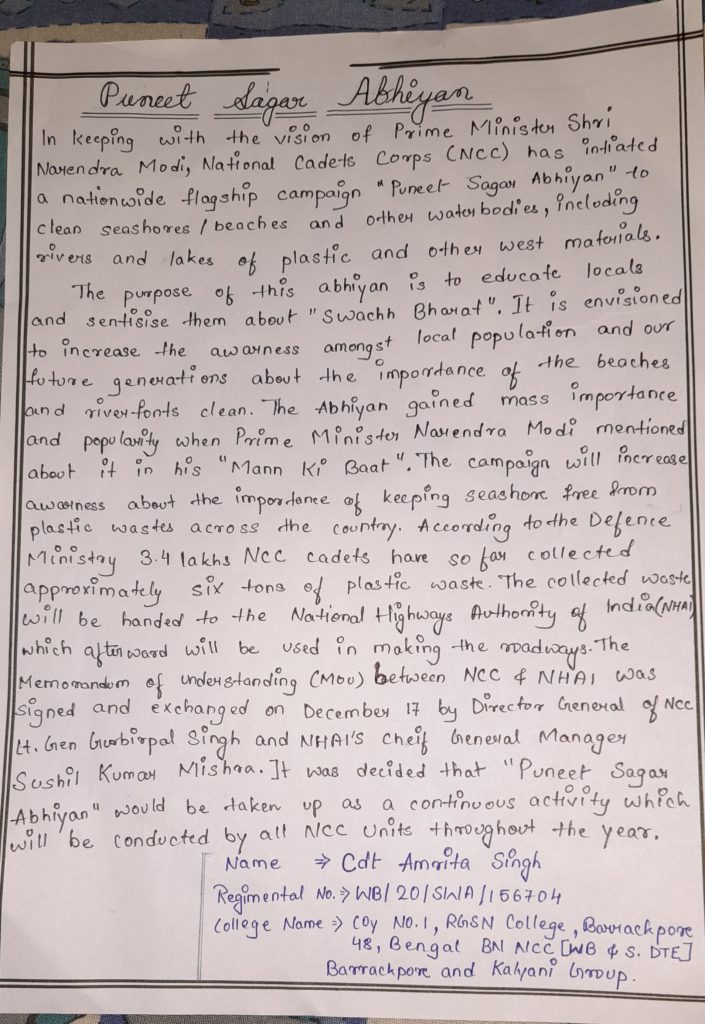 Puneet Sagar Abhiyan
In keeping with the vision of Prime Minister Shri
Narendra Modi, National Cadets Corps (NCC) has intiated
a nationwide flagship campaign "Puneet Sagar Abhiyan" to
clean seashores / beaches and other waterbodies, including
rivers and lakes of plastic and other west materials.
The purpose of this abhiyan is to educate locals
and sentisise them about "Swachh Bharat". It is envisioned
to increase the awarness amongst local population and our
future generations about the importance of the beaches
and river fonts clean. The Abhiyan gained mass importance
and popularity when Prime Minister Narendra Modi mentioned
about it in his "Mann Ki Baat". The campaign will increase
awarness about the importance of keeping seashore free from
plastic wastes across the country. According to the Defence
Ministry 3.4 lakhs NCC cadets have so far collected
approximately six tons of plastic waste. The collected waste
will be handed to the National Highways Authority of India (NHAI)
which afterward will be used in making the roadways. The
Memorandum of understanding (MOU) between NCC & NHAI was
signed and exchanged on December 17 by Director General of NCC
Lt. Gen Gurbirpal Singh and NHAI'S cheif General Manager
Sushil Kumar Mishra. It was decided that "Puneet Sagar
Abhiyan" would be taken up as a continuous activity which
will be conducted by all NCC Units throughout the year.
Name ⇒ Cdt Amrita Singh
Regimental No. ⇒ WB/20/SWA/156704
College Name ⇒ COY NO.1, RGSN College, Barrackpore
48, Bengal BN NCC [WB & S. DTE]
Barrackpore and Kalyani Group.